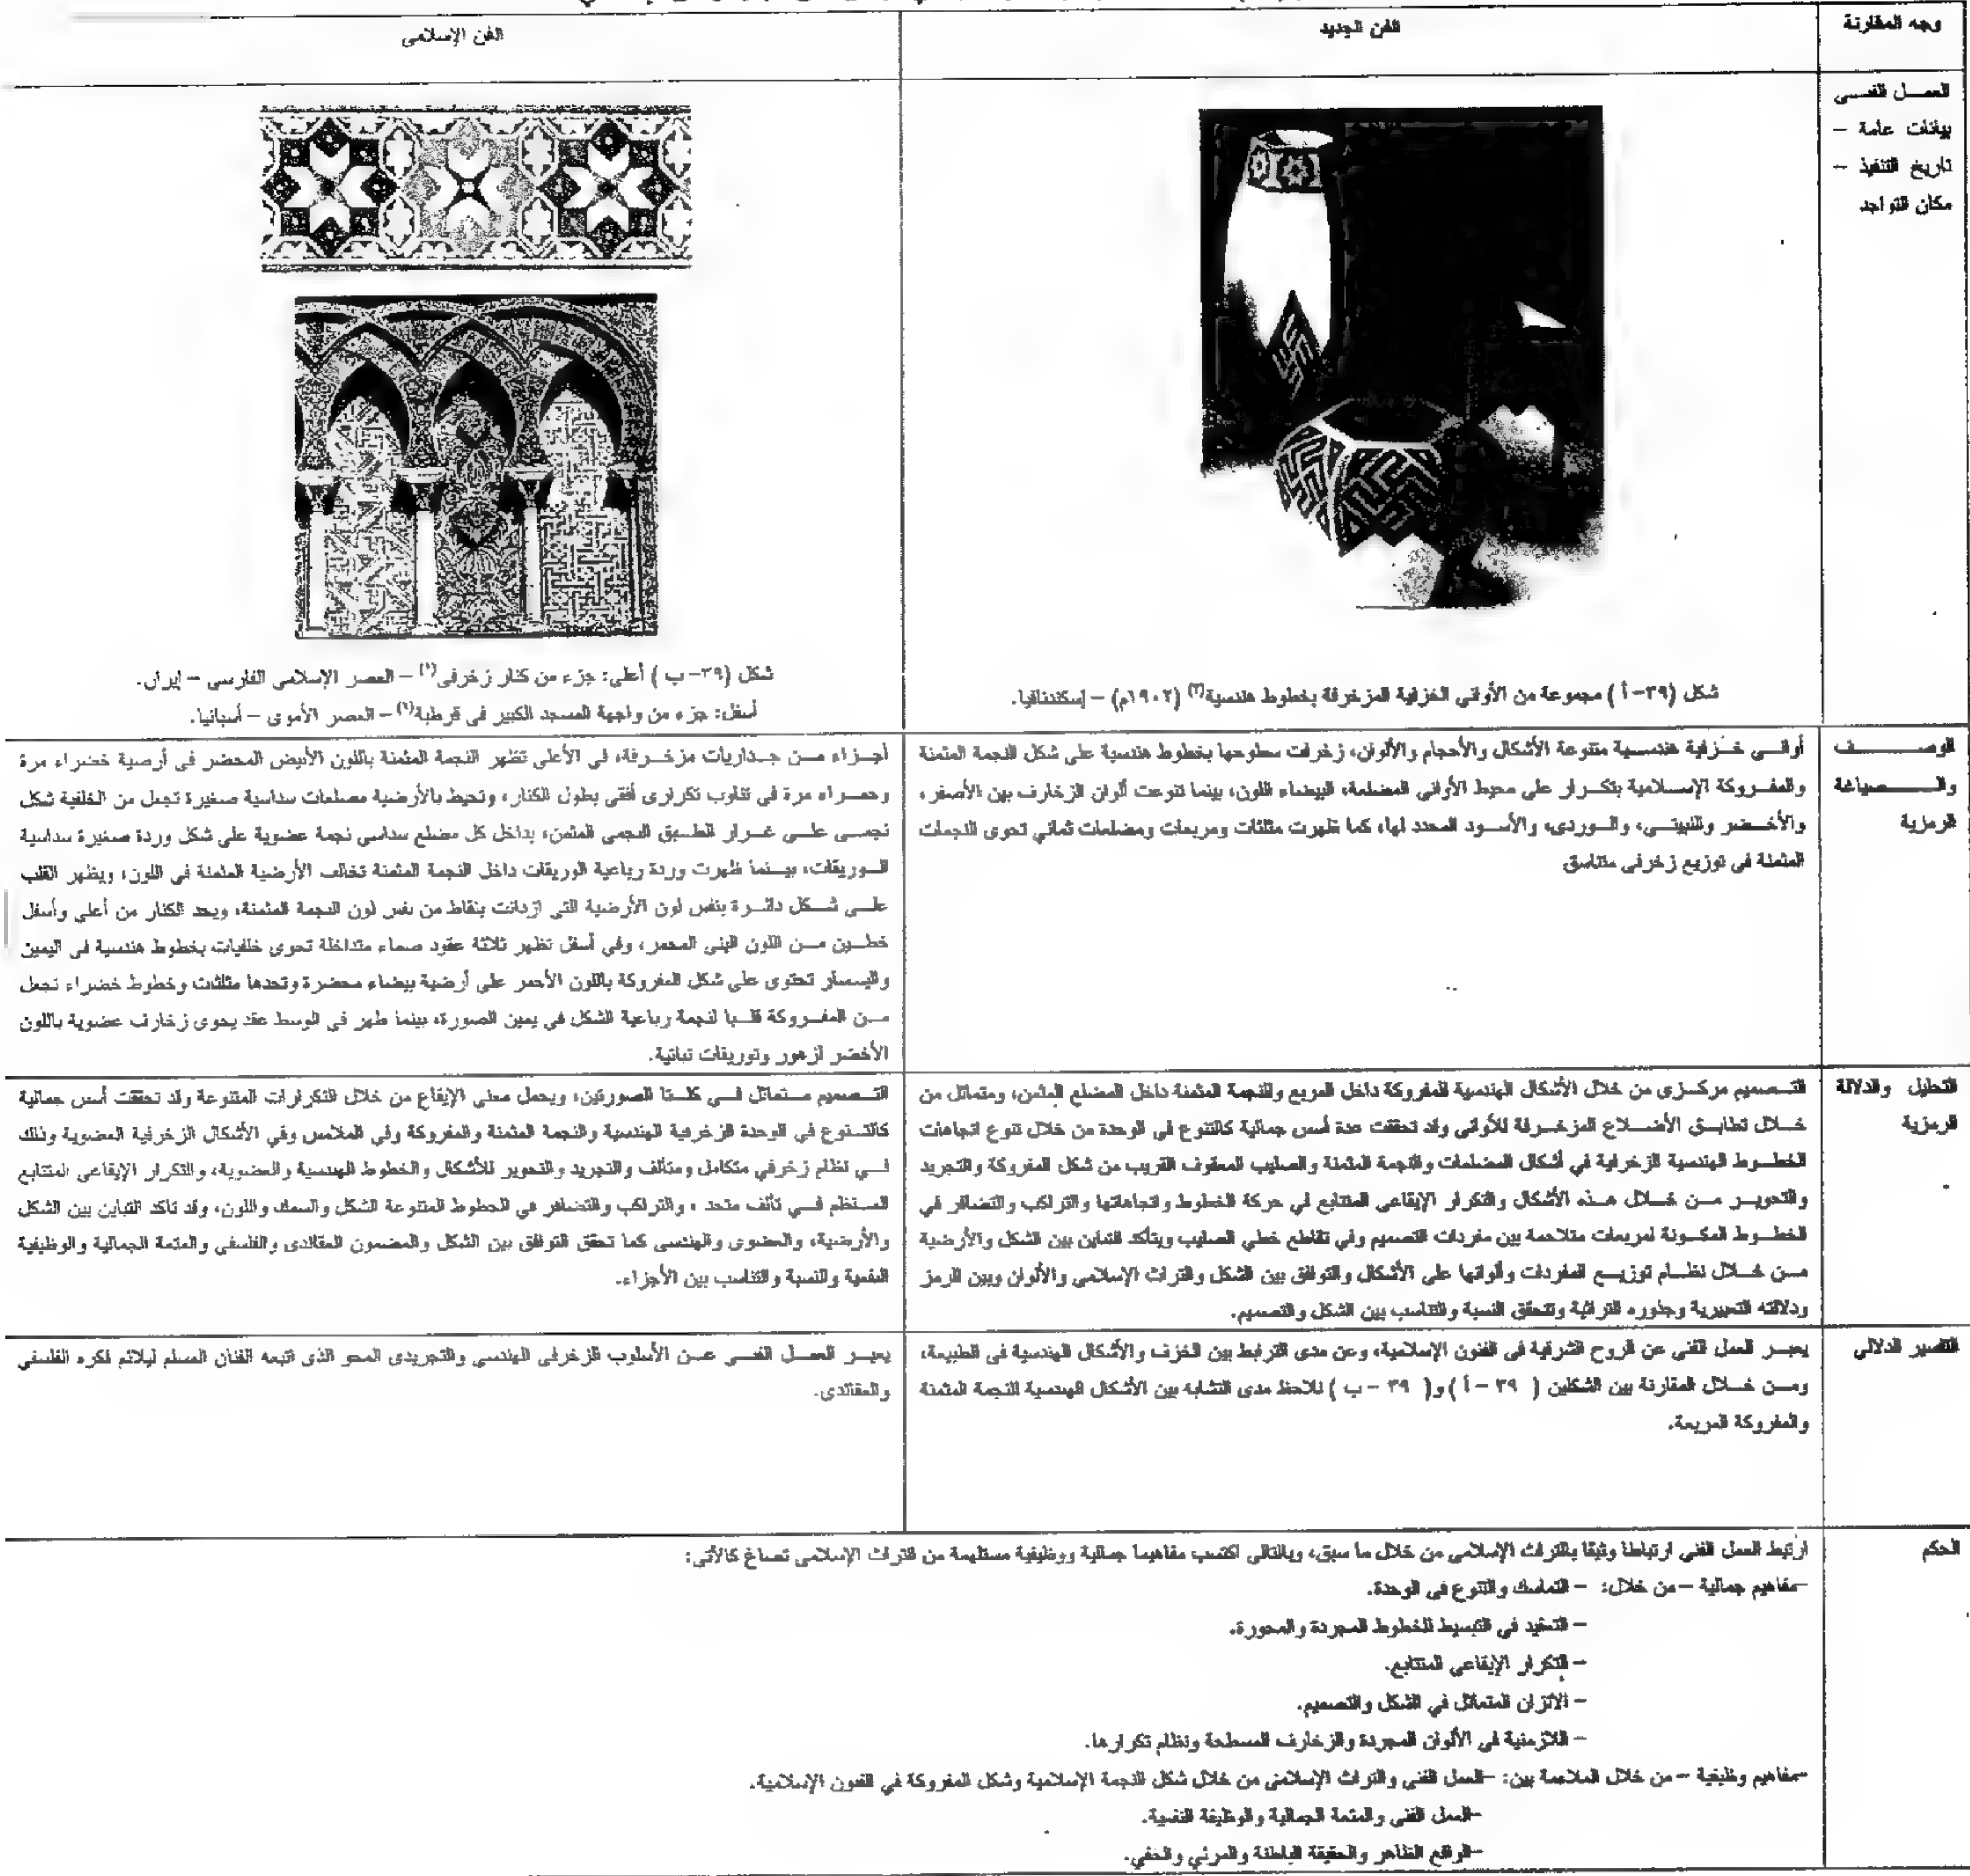 وجه المقارنة
الفن الجديد
الفن الإسلامى
العمل الفنى
بيانات عامة –
تاريخ التنفيذ –
مكان التواجد
شكل (٣٩- أ ) مجموعة من الأوانى الخزفية المزخرفة بخطوط هندسية(٣) (١٩٠٢م) – إسكندنافيا.
شكل (٣٩- ب ) أعلى: جزء من كنار زخرفى(١) – العصر الإسلامى الفارسى – إيران.
أسفل: جزء من واجهة المسجد الكبير فى قرطبة(١) – العصر الأموى – أسبانيا.
الوصف
والصياغة
الرمزية
أوانى خزفية هندسية متنوعة الأشكال والأحجام والألوان، زخرفت سطوحها بخطوط هندسية على شكل النجمة المثمنة
والمفروكة الإسلامية بتكرار على محيط الأوانى المضلعة، البيضاء اللون، بينما تنوعت ألوان الزخارف بين الأصفر،
والأخضر والنبيتى، والوردى، والأسود المحدد لها، كما ظهرت مثلثات ومربعات ومضلعات ثمانى تحوى النجمات
المثمنة فى توزيع زخرفى متناسق
أجزاء من جداريات مزخرفة، فى الأعلى تظهر النجمة المثمنة باللون الأبيض المخضر فى أرضية خضراء مرة
وحمراء مرة فى تناوب تكرارى أفقى بطول الكنار، وتحيط بالأرضية مضلعات سداسية صغيرة تجعل من الخلفية شكل
نجمى على غرار الطبق النجمى المثمن، بداخل كل مضلع سداسى نجمة عضوية على شكل وردة صغيرة سداسية
الوريقات، بينما ظهرت وردة رباعية الوريقات داخل النجمة المثمنة تخالف الأرضية المثمنة فى اللون، ويظهر القلب
على شكل دائرة بنفس لون الأرضية التى ازدانت بنقاط من نفس لون النجمة المثمنة، ويحد الكنار من أعلى وأسفل
خطين من اللون البنى المحمر، وفى أسفل تظهر ثلاثة عقود صماء متداخلة تحوى خلفيات بخطوط هندسية فى اليمين
واليسار تحتوى على شكل المفروكة باللون الأحمر على أرضية بيضاء مخضرة وتحدها مثلثات وخطوط خضراء تجعل
من المفروكة قلبا لنجمة رباعية الشكل فى يمين الصورة، بينما ظهر فى الوسط عقد يحوى زخارف عضوية باللون
الأخضر لزهور وتوريقات نباتية.
التحليل والدلالة
الرمزية
التصميم مركزى من خلال الأشكال الهندسية للمفروكة داخل المربع والنجمة المثمنة داخل المضلع المثمن، ومتماثل من
خلال تطابق الأضلاع المزخرفة للأوانى وقد تحققت عدة أسس جمالية كالتنوع فى الوحدة من خلال تنوع اتجاهات
الخطوط الهندسية الزخرفية في أشكال المضلعات والنجمة المثمنة والصليب المعقوف القريب من شكل المفروكة والتجريد
والتحوير من خلال هذه الأشكال والتكرار الإيقاعى المتتابع في حركة الخطوط واتجاهاتها والتراكب والتضافر في
الخطوط المكونة لمربعات متلاحمة بين مفردات التصميم وفي تقاطع خطي الصليب ويتأكد التباين بين الشكل والأرضية
من خلال نظام توزيع المفردات وألوانها على الأشكال والتوافق بين الشكل والتراث الإسلامي والألوان وبين الرمز
ودلالته التعبيرية وجذوره التراثية وتتحقق النسبة والتناسب بين الشكل والتصميم.
التصميم متماثل في كلتا الصورتين، ويحمل معنى الإيقاع من خلال التكرارات المتنوعة وقد تحققت أسس جمالية
كالتنوع في الوحدة الزخرفية الهندسية والنجمة المثمنة والمفروكة وفي الملامس وفي الأشكال الزخرفية العضوية وذلك
في نظام زخرفي متكامل ومتألف والتجريد والتحوير للأشكال والخطوط الهندسية والعضوية، والتكرار الإيقاعى المتتابع
المنتظم في تألف متحد ، والتراكب والتضافر في الخطوط المتنوعة الشكل والسمك واللون، وقد تاكد التباين بين الشكل
والأرضية، والعضوى والهندسى كما تحقق التوافق بين الشكل والمضمون العقائدى والفلسفي والمتعة الجمالية والوظيفية
النفعية والنسبة والتناسب بين الأجزاء.
التفسير الدلالى
يعبر العمل الفني عن الروح الشرقية فى الفنون الإسلامية، وعن مدى الترابط بين الخزف والأشكال الهندسية فى الطبيعة،
ومن خلال المقارنة بين الشكلين ( ٣٩ – أ ) و( ٣٩ – ب ) نلاحظ مدى التشابة بين الأشكال الهندسية للنجمة المثمنة
والمفروكة المربعة.
يعبر العمل الفنى عن الأسلوب الزخرفى الهندسى والتجريدى المحو الذى اتبعه الفنان المسلم ليلائم فكره الفلسفي
والعقائدى.
الحكم
ارتبط العمل الفني ارتباطا وثيقا بالتراث الإسلامى من خلال ما سبق، وبالتالى اكتسب مفاهيما جمالية ووظيفية مستلهمة من التراث الإسلامى تصاغ كالآتى:
–مفاهيم جمالية – من خلال: – التماسك والتنوع فى الوحدة.
– التعقيد فى التبسيط للخطوط المجردة والمحورة.
– التكرار الإيقاعي المتتابع.
– الاتزان المتماثل في الشكل والتصميم.
– اللازمنية في الألوان المجردة والزخارف المسطحة ونظام تكرارها.
–مفاهيم وظيفية – من خلال الملاءمة بين: –العمل الفني والتراث الإسلامى من خلال شكل النجمة الإسلامية وشكل المفروكة في الفنون الإسلامية.
–العمل الفنى والمتعة الجمالية والوظيفة النفسية.
–الواقع الظاهر والحقيقة الباطنة والمرئي والخفي.